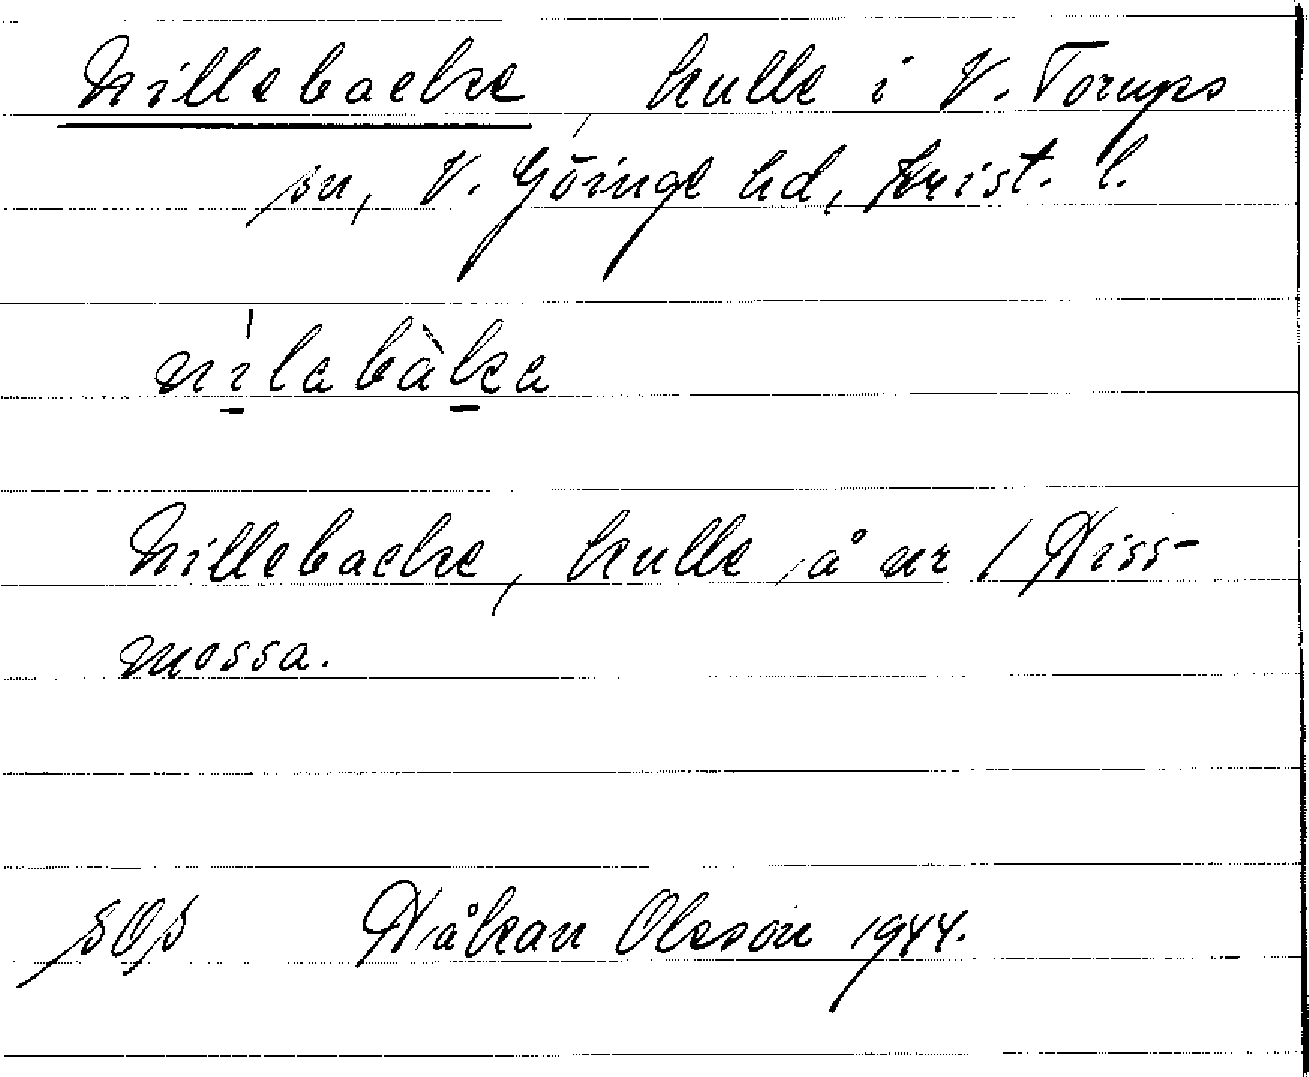 Nillebacke, kulle i V. Torups
sn, V. Göinge hd, Krist. l.
nílabàka
Nillebacke, kulle å nr 1 Hiss-
mossa.
SOS Håkan Olsson 1944.